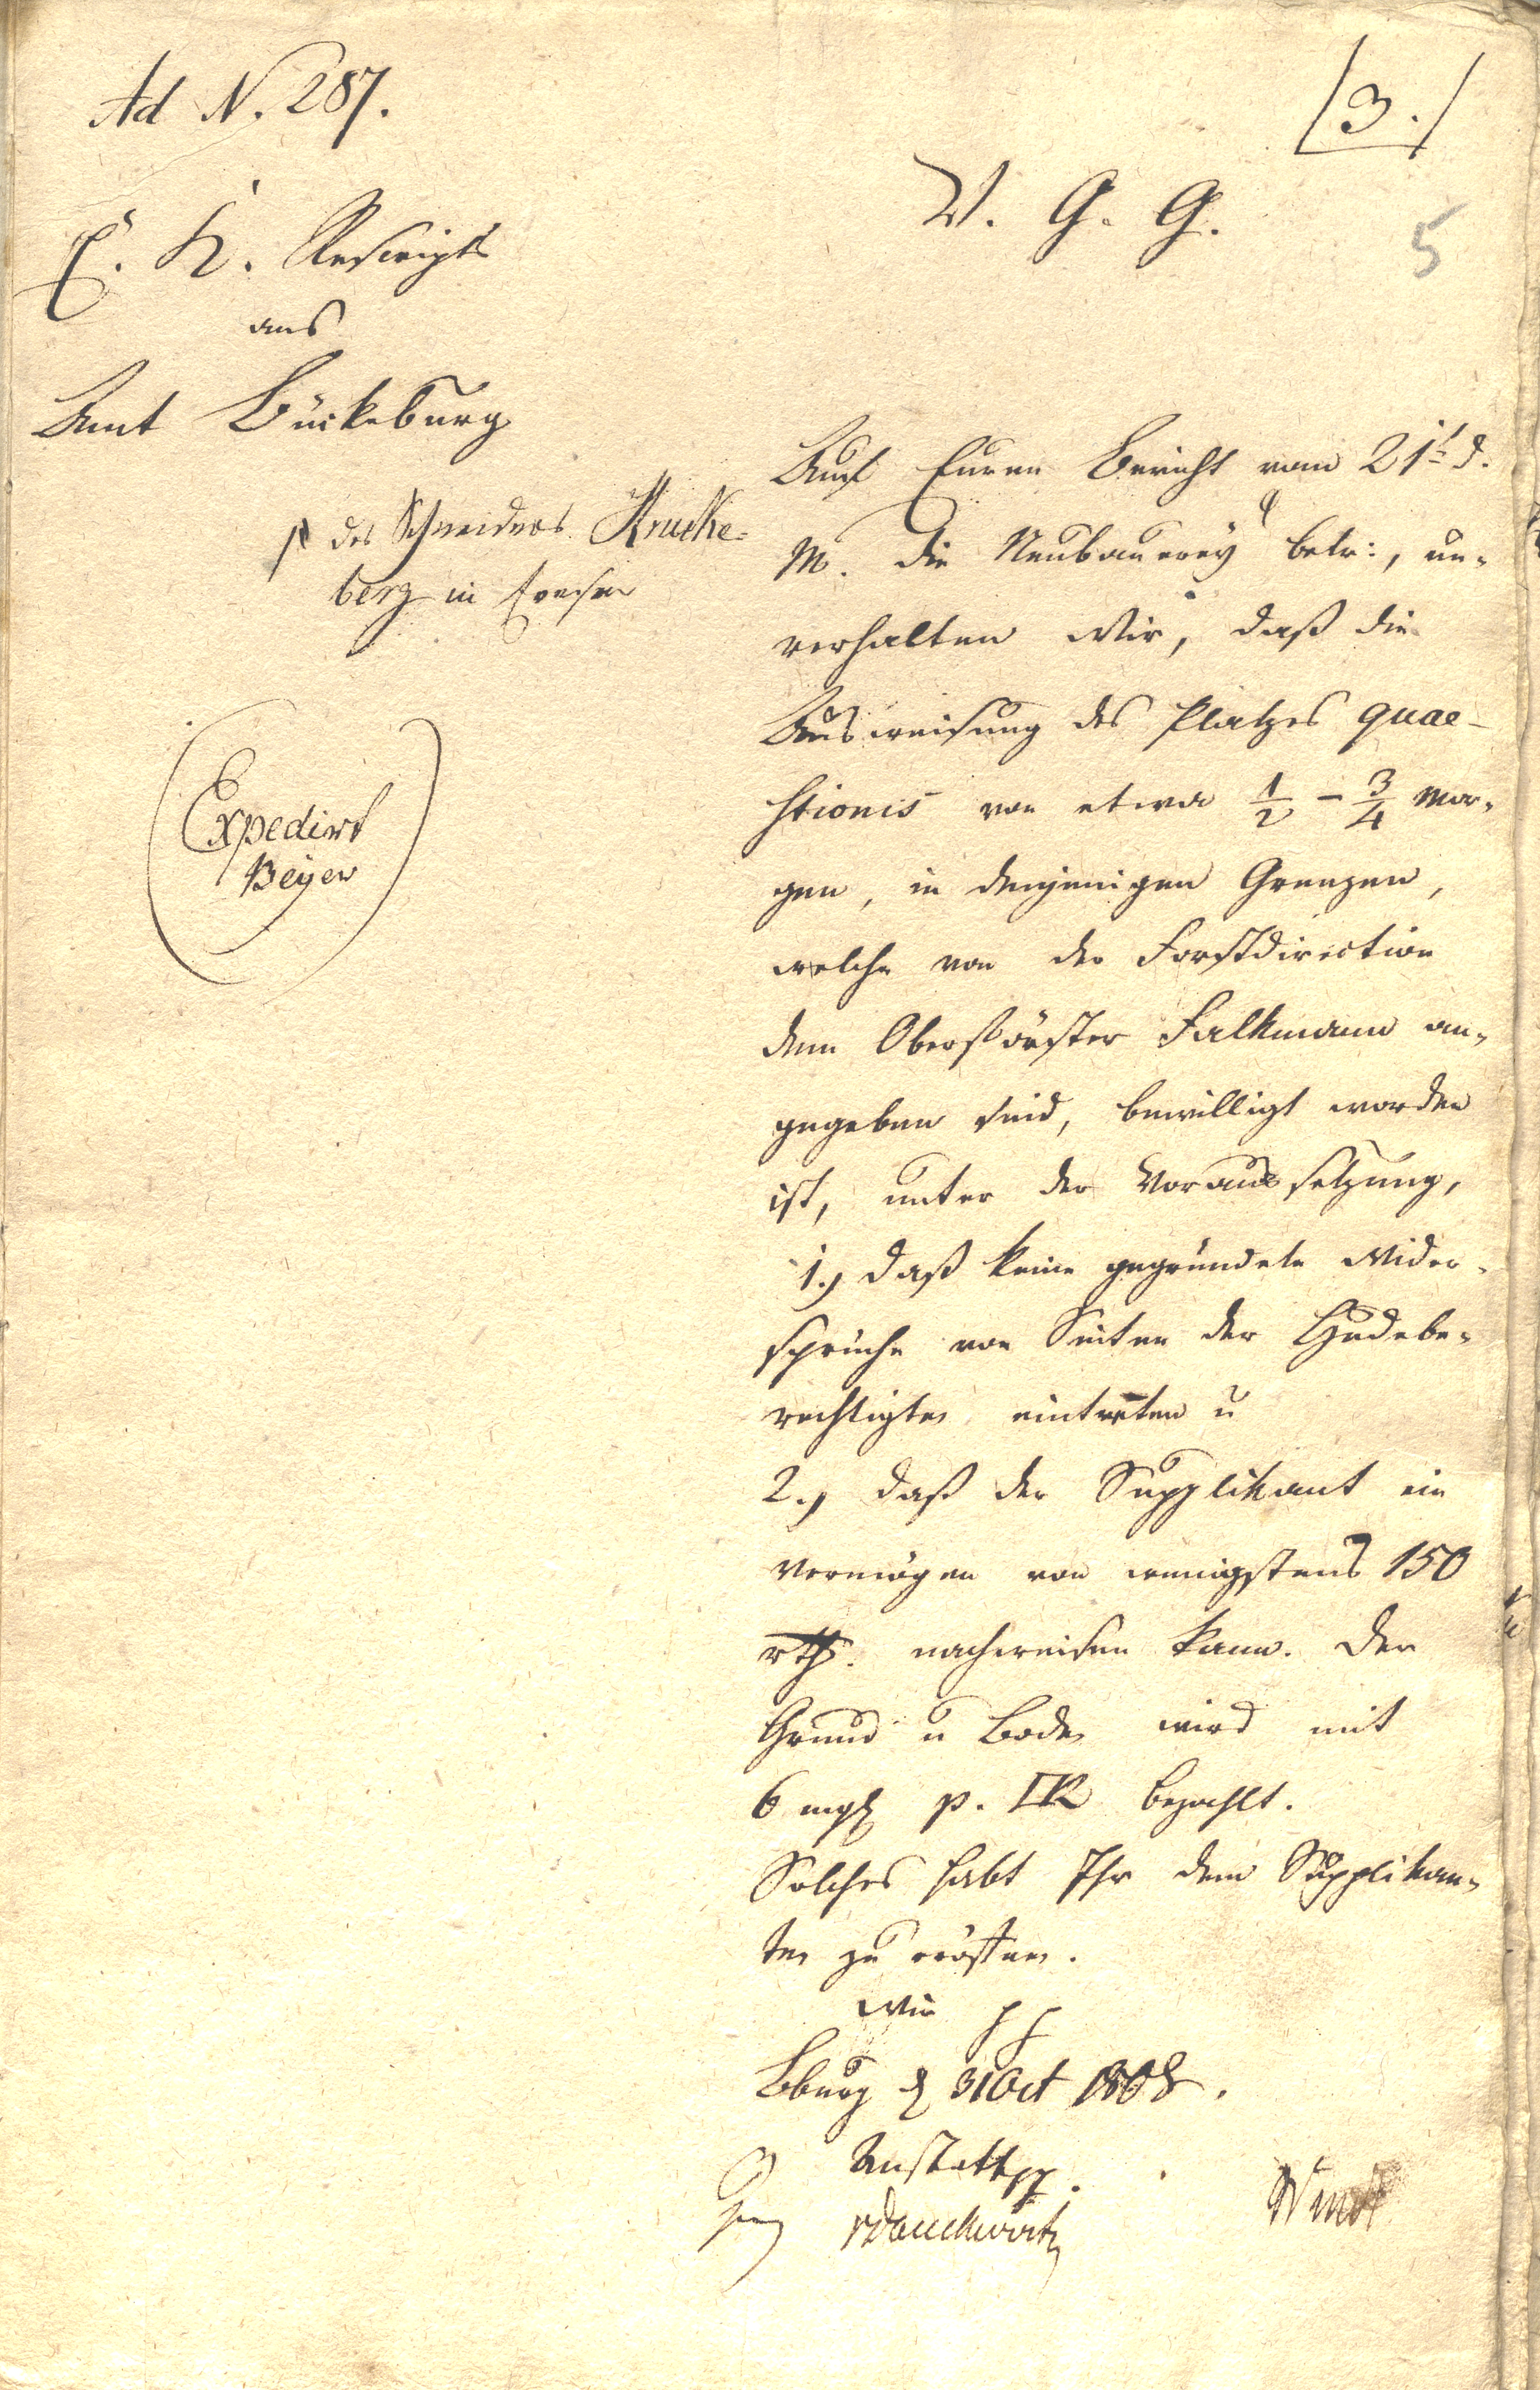 Ad N. 287.
/3./
5
E. K. Rescript
ans
Amt Bückeburg
V. G. G.
Auf Euren Bericht vom 21t d.
M. die Neubauerey betr:, un-
des Schneiders Krucke-
berg in Evesen
verhalten Wir, daß die
Ausweisung des Platzes quae-
stionis von etwa 1/2 - 3/4 Mor-
gen, in denjenigen Grenzen,
welche von der Forstdirection
dem Oberförster Falkmann an-
gegeben sind, bewilligt worden
ist, unter der Voraussetzung,
1.) daß keine gegründete Wider-
sprüche von Seiten der Hudebe-
rechtigten eintreten u
2.) daß der Supplikant ein
Vermögen von wenigstens 150
rth. nachweisen kann. Der
Grund u Boden wird mit
6 mgl p. □R bezahlt.
Solches habt Ihr dem Supplikan-
ten zu eröffnen.
Wir
Bburg d 31 Oct 1808.
Anstatt pp.
Expedirt
Beyer